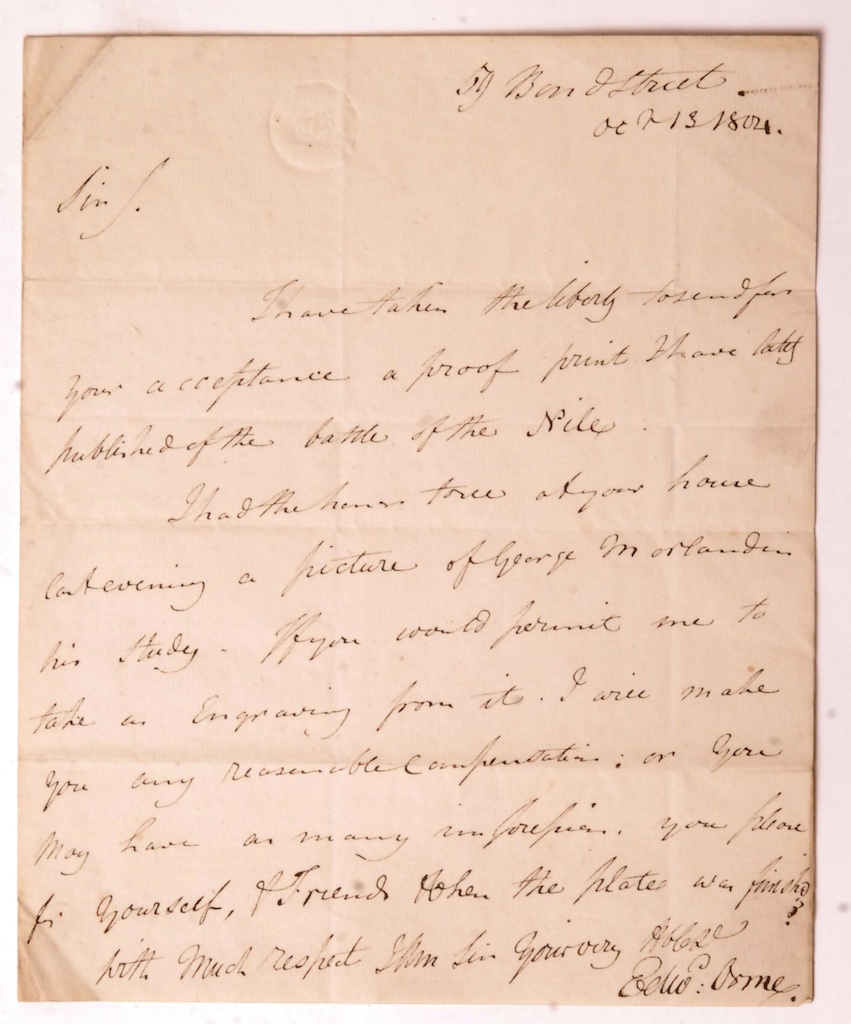 59 Bond Street.
Oct 13 1804.
Sir,
I have taken the liberty to send for
your acceptance a proof print I have lately
published of the battle of the Nile.
I had the honor to see at your house
last evening a picture of George Morland in
his Study. If you would permit me to
take an Engraving from it. I will make
you any reasonable Compensation; or you
may have as many impressions. you please
for yourself, & Friends When the plate was finishd
with Much respect I Am Sir Your very
Edwd: Orme.